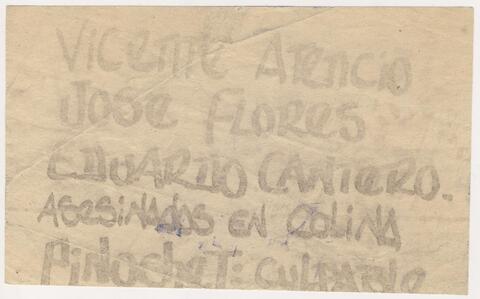 Vicente Atencio
Jose Flores
Eduardo Cantero.
Asesinados en Colina
Pinochet: Culpable